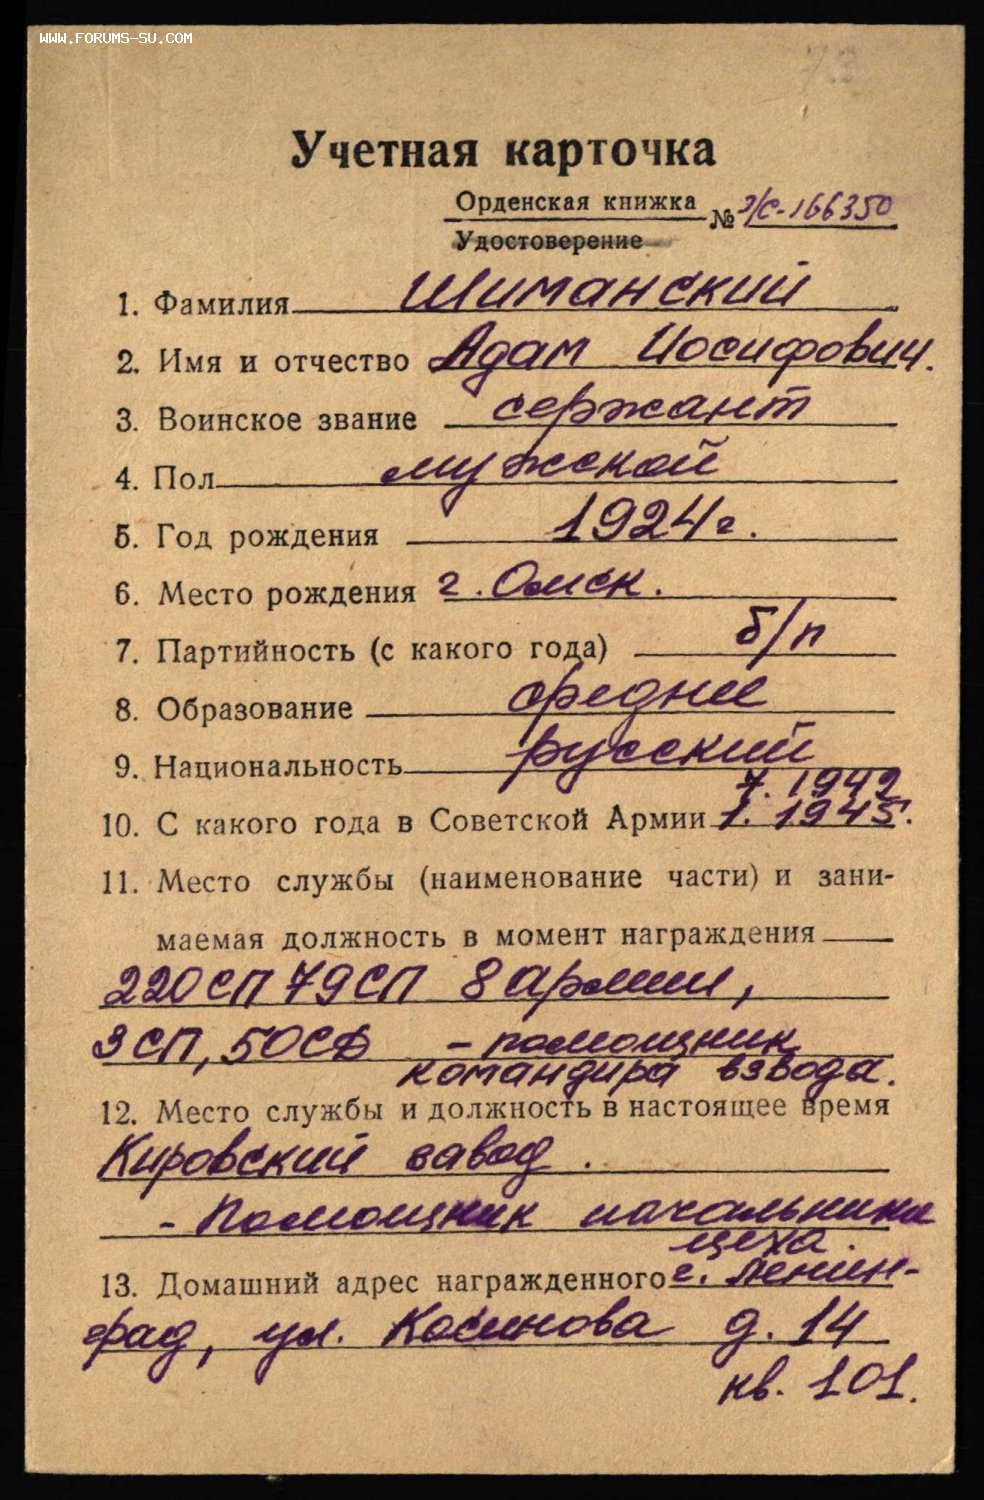 WWW.FORUMS-SU.COM
Учетная карточка
Орденская книжка
Удостоверение
№ з/с-166350
1. Фамилия Шиманский
2. Имя и отчество Адам Иосифович.
3. Воинское звание сержант
4. Пол мужской
5. Год рождения 1924 г.
6. Место рождения г. Омск.
7. Партийность (с какого года) б/п
8. Образование средни
9. Национальность русский
7. 1942
10. С какого года в Советской Армии 1. 1945.
11. Место службы (наименование части) и зани-
маемая должность в момент награждения
220 СП 79 СП 8 армии,
3 СП, 50 СД – помощник
командира взвода.
12. Место службы и должность в настоящее время
Кировский завод.
- Помощник начальника
цеха.
13. Домашний адрес награжденного г. Ленин-
град, ул. Косинова д. 14
кв. 101.